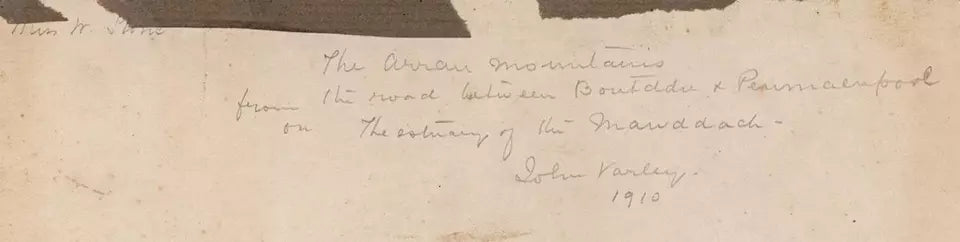 Miss W. Stone
The Arran mountains
from the road between Bontddu & Penmaenpool
on The estuary of the Mawddach -
John Varley.
1910